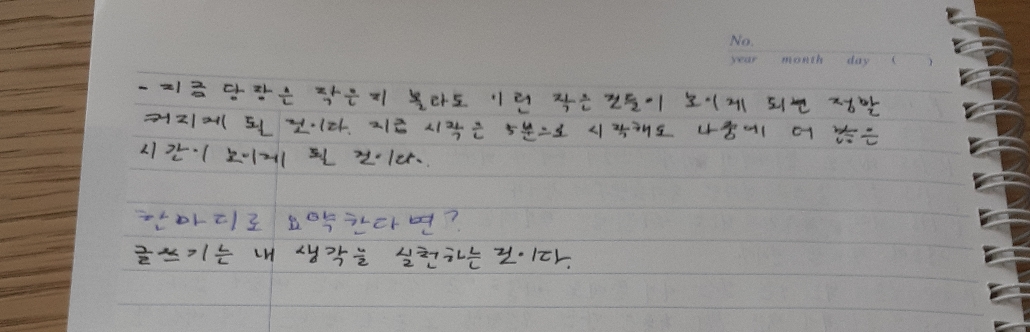 No.
year month day ( )
- 지금 당장은 작은지 몰라도 이런 작은 것들이 모이게 되면 정말
커지게 될 것이다. 지금 시작은 5분으로 시작해도 나중에 더 많은
시간이 모이게 될 것이다.
한마디로 요약한다면?
글쓰기는 내 생각을 실천하는 것이다.